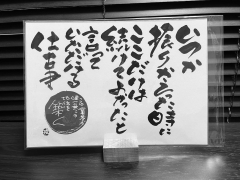 いつか
振りかえった時に
ここだけは
続けてよかったと
言って
いただける
仕事